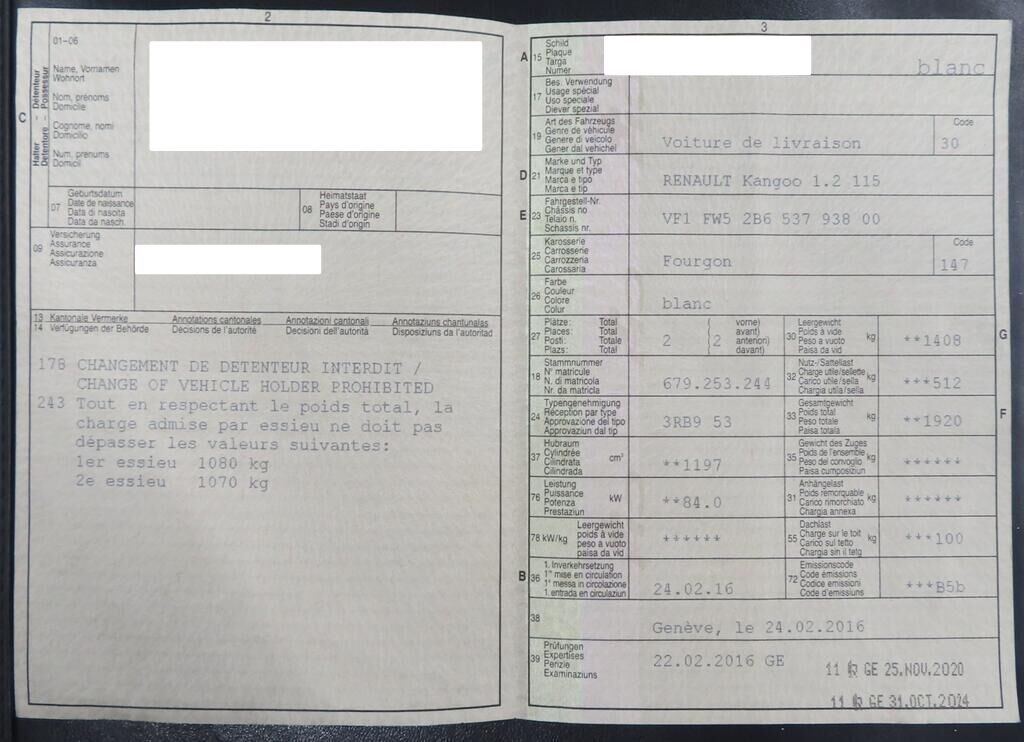 2
01-06
Halter - Détenteur
Detentore - Possessur
C
Name, Vornamen
Wohnort
Nom, prénoms
Domicile
Cognome, nomi
Domicilio
Num, prenums
Domicil
07
Geburtsdatum
Date de naissance
Data di nascita
Data da nasch.
08
Heimatstaat
Pays d'origine
Paese d'origine
Stadi d'origin
09
Versicherung
Assurance
Assicurazione
Assicuranza
13 Kantonale Vermerke Annotations cantonales Annotazioni cantonali Annotaziuns chantunalas
14 Verfügungen der Behörde Décisions de l'autorité Decisioni dell'autorità Disposiziuns da l'autoritad
178 CHANGEMENT DE DETENTEUR INTERDIT /
CHANGE OF VEHICLE HOLDER PROHIBITED
243 Tout en respectant le poids total, la
charge admise par essieu ne doit pas
dépasser les valeurs suivantes:
1er essieu 1080 kg
2e essieu 1070 kg
3
A 15
Schild
Plaque
Targa
Numer
blanc
17
Bes. Verwendung
Usage spécial
Uso speciale
Diever spezial
19
Art des Fahrzeugs
Genre de véhicule
Genere di veicolo
Gener dal vehichel
Voiture de livraison
Code
30
D 21
Marke und Typ
Marque et type
Marca e tipo
Marca e tip
RENAULT Kangoo 1.2 115
E 23
Fahrgestell-Nr.
Châssis no
Telaio n.
Schassis nr.
VF1 FW5 2B6 537 938 00
25
Karosserie
Carrosserie
Carrozzeria
Carossaria
Fourgon
Code
147
26
Farbe
Couleur
Colore
Colur
blanc
27
Plätze: Total
Places: Total
Posti: Totale
Plazs: Total
2
( vorne)
( avant)
( anteriori)
( davant)
2
30
Leergewicht
Poids à vide
Peso a vuoto
Paisa da vid
kg
**1408
G
18
Stammnummer
N° matricule
N. di matricola
Nr. da matricla
679.253.244
32
Nutz-/Sattellast
Charge utile/sellette
Carico utile/sella
Chargia utila/sella
kg
***512
24
Typengenehmigung
Réception par type
Approvazione del tipo
Approvaziun dal tip
3RB9 53
33
Gesamtgewicht
Poids total
Peso totale
Paisa totala
kg
**1920
F
37
Hubraum
Cylindrée
Cilindrata
Cilindrada
cm³
**1197
35
Gewicht des Zuges
Poids de l'ensemble
Peso del convoglio
Paisa cumposiziun
kg
******
76
Leistung
Puissance
Potenza
Prestaziun
kW
**84.0
31
Anhängelast
Poids remorquable
Carico rimorchiato
Chargia annexa
kg
******
78 kW/kg
Leergewicht
poids à vide
peso a vuoto
paisa da vid
******
55
Dachlast
Charge sur le toit
Carico sul tetto
Chargia sin il tetg
kg
***100
B 36
1. Inverkehrsetzung
1re mise en circulation
1a messa in circolazione
1. entrada en circulaziun
24.02.16
72
Emissionscode
Code émissions
Codice emissioni
Code d'emissiuns
***B5b
38
Genève, le 24.02.2016
39
Prüfungen
Expertises
Perizie
Examinaziuns
22.02.2016 GE
11 GE 25.NOV.2020
11 GE 31.OCT.2024